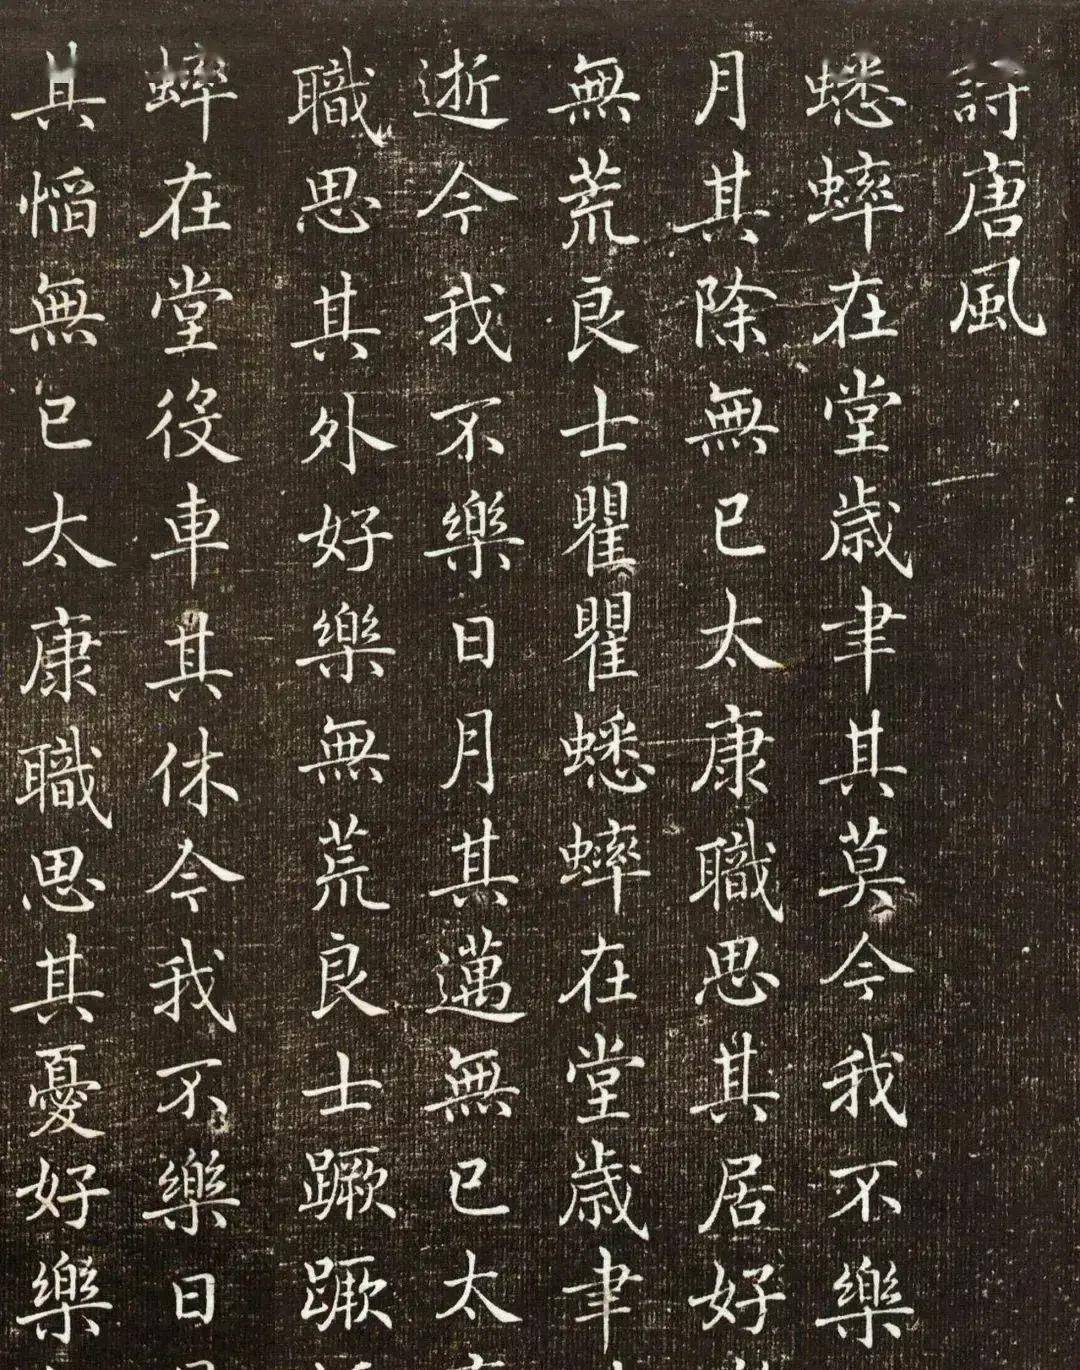 詩唐風
蟋蟀在堂歳聿其莫今我不樂
月其除無已太康職思其居好
無荒良士瞿瞿蟋蟀在堂歳聿
逝今我不樂日月其邁無已太
職思其外好樂無荒良士蹶蹶
蟀在堂役車其休今我不樂日
其慆無已太康職思其憂好樂